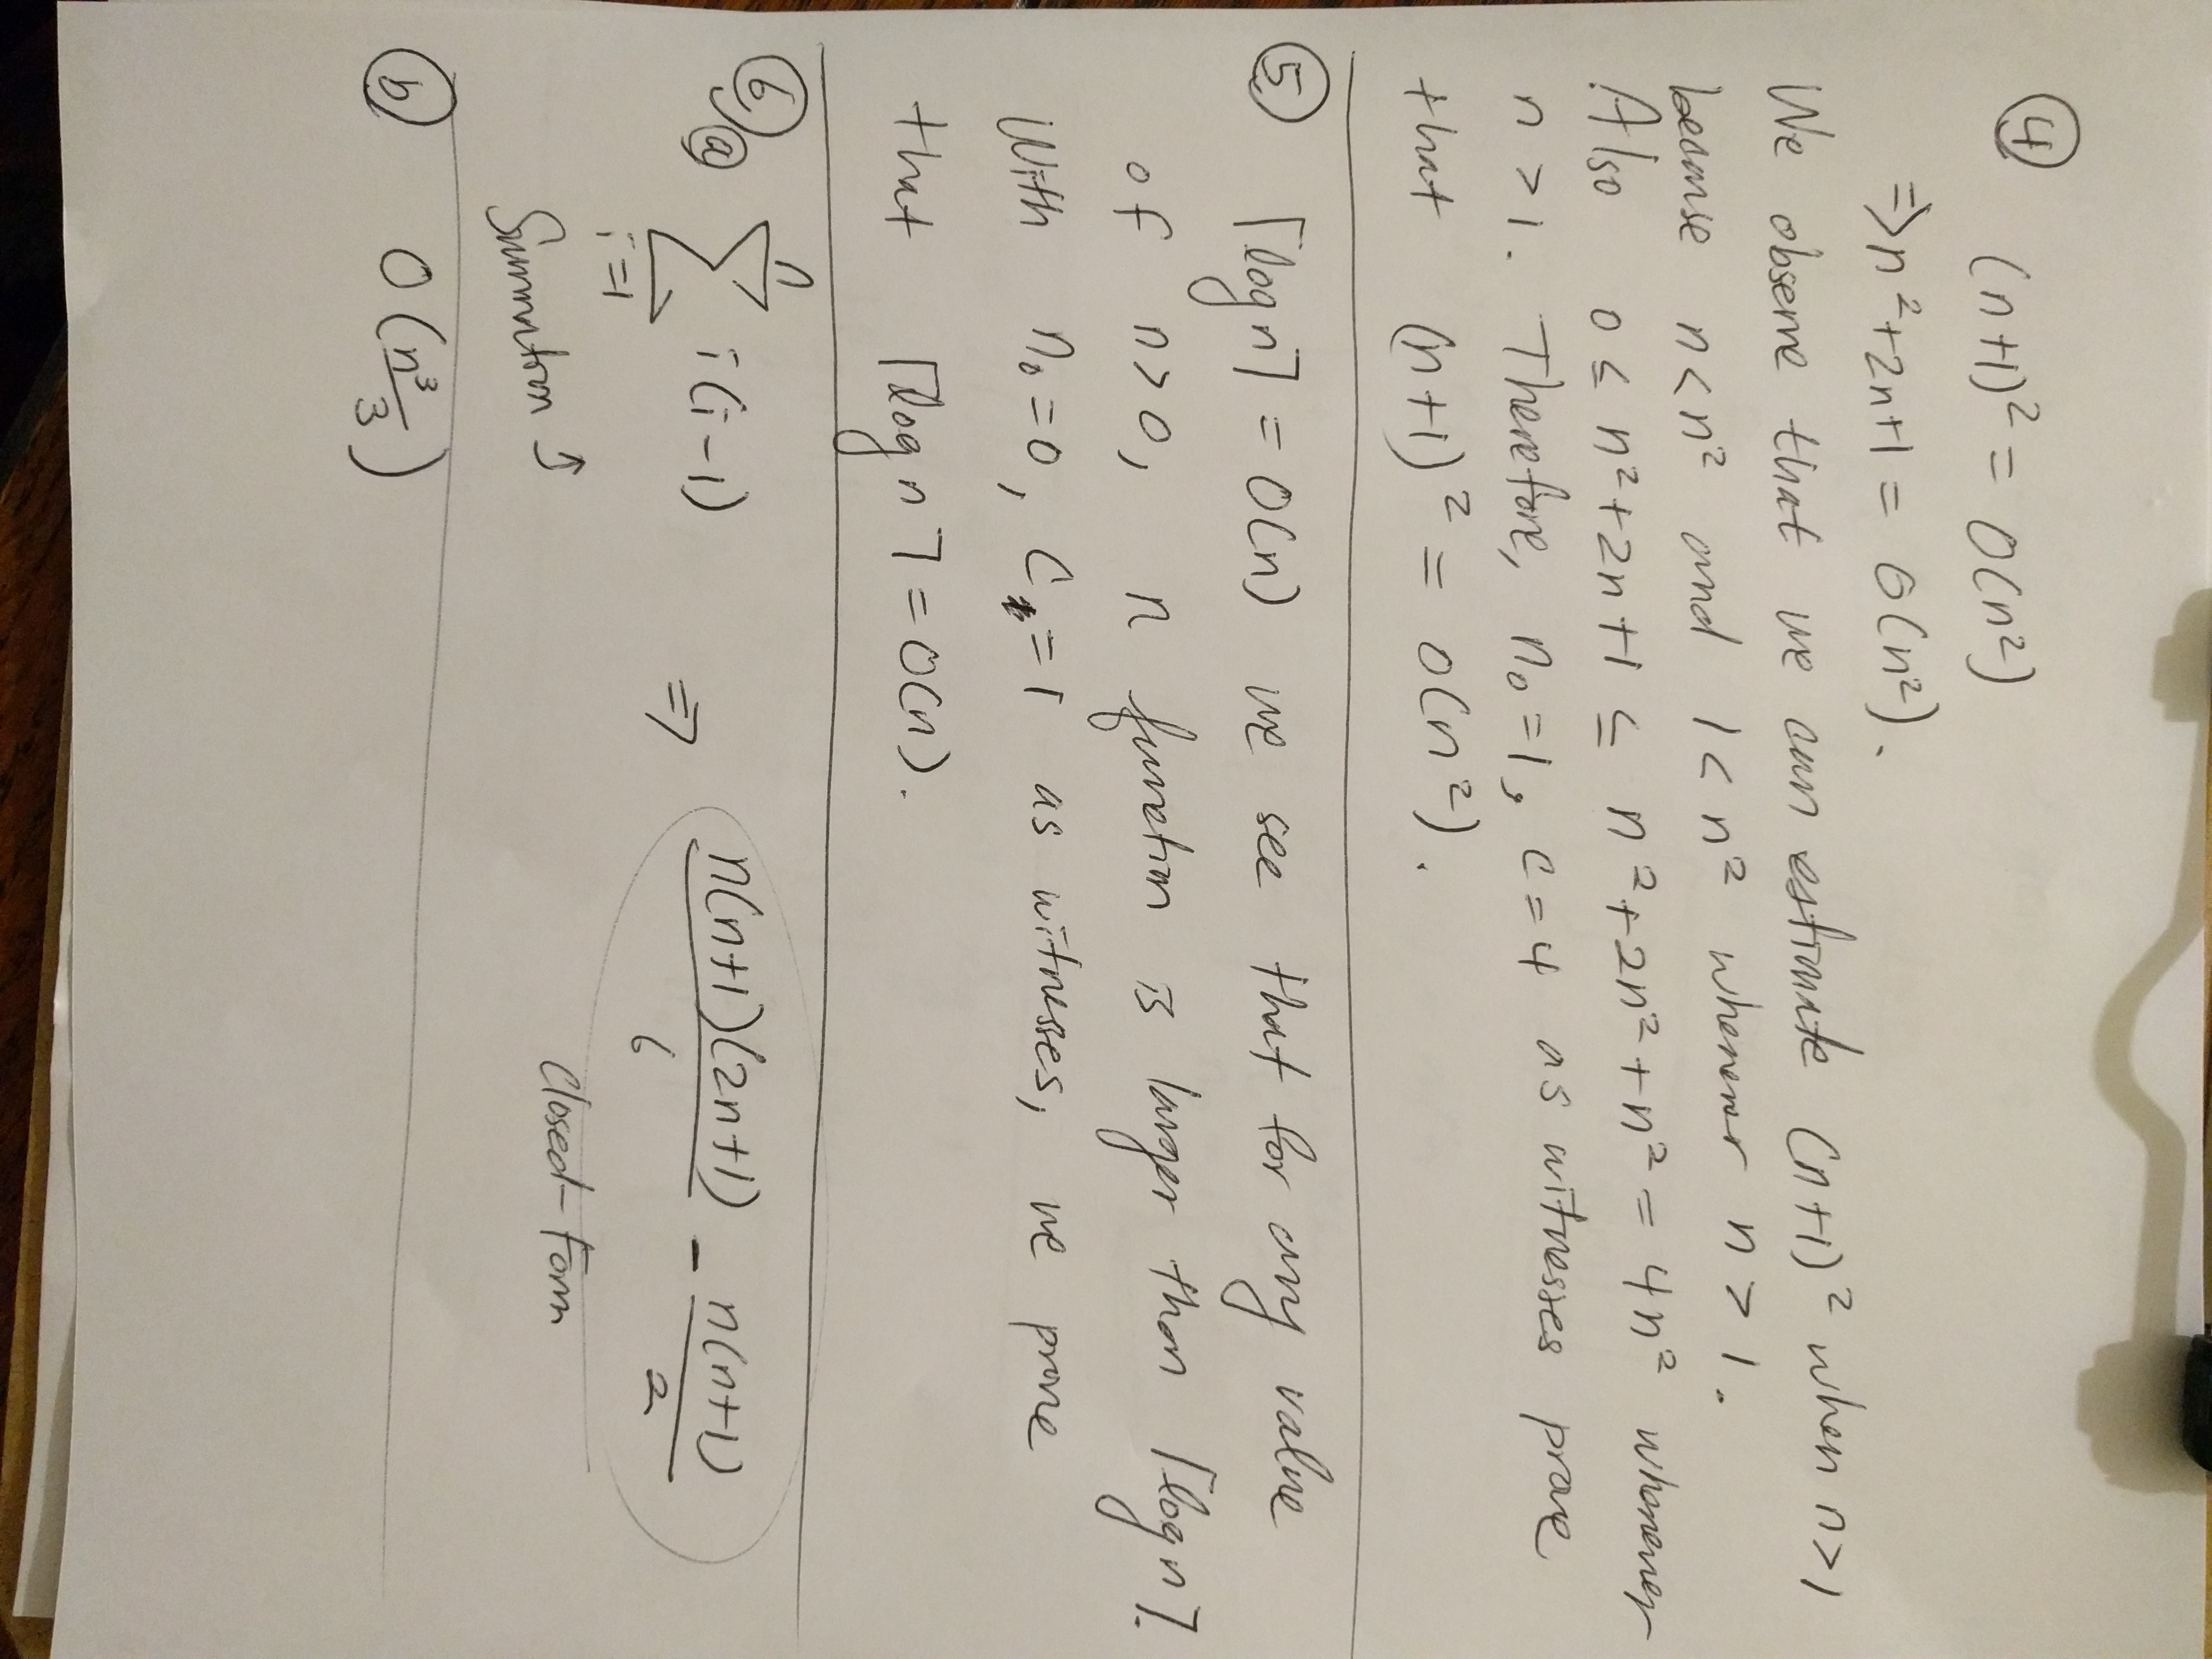 ④ (n+1)² = O(n²)
=> n²+2n+1 = O(n²).
We observe that we can estimate (n+1)² when n>1
because n<n² and 1<n² whenever n>1.
Also 0 ≤ n²+2n+1 ≤ n²+2n²+n² = 4n² whenever
n>1. Therefore, n₀=1, c=4 as witnesses prove
that (n+1)² = O(n²).
⑤ ⌈log n⌉ = O(n) we see that for any value
of n>0, n function is larger than ⌈log n⌉.
With n₀=0, C=1 as witnesses, we prove
that ⌈log n⌉ = O(n).
⑥ ⓐ n∑i=1 i(i-1) => n(n+1)(2n+1)/6 - n(n+1)/2
Summation ↑ Closed-Form
ⓑ O(n³/3)